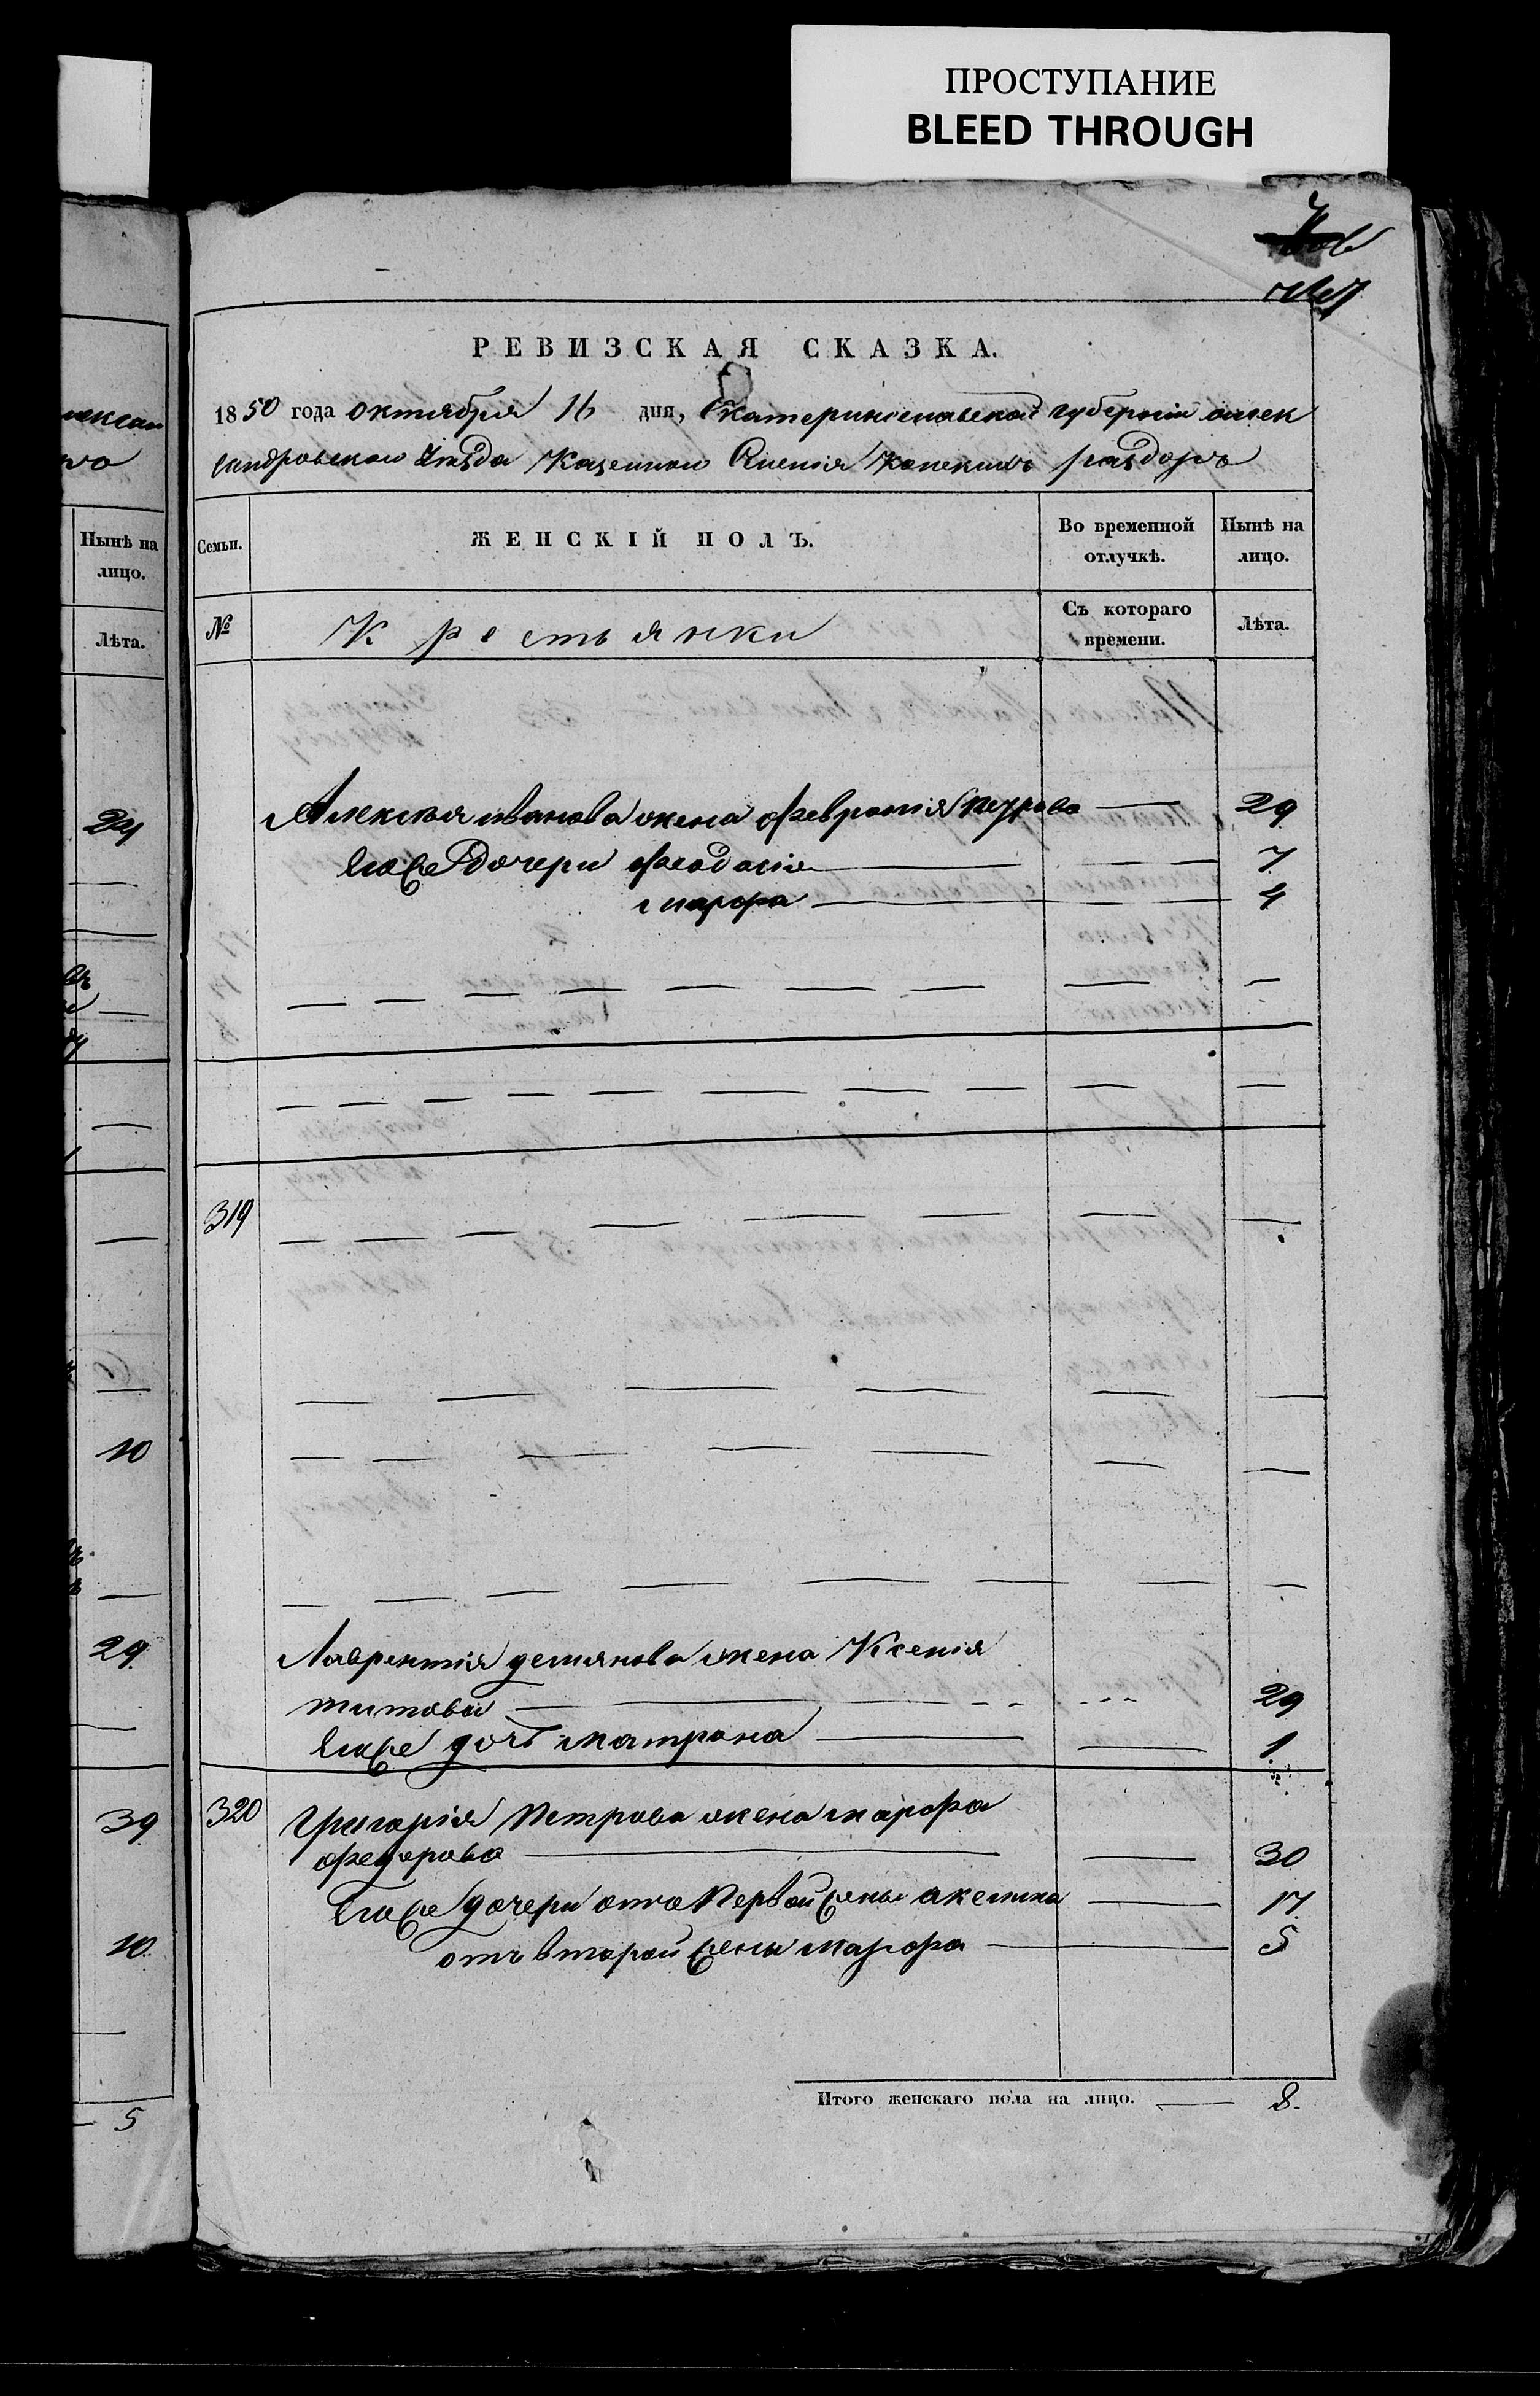 ПРОСТУПАНИЕ
BLEED THROUGH
РЕВИЗСКАЯ СКАЗКА.
1850 года октября 16 дня, Екатеринославской губернии алек
сандровскаго уѣзда Казенного Селенія Конскихъ раздоръ
Семьи. ЖЕНСКІЙ ПОЛЪ. Во временной отлучкѣ. Нынѣ на лицо.
№ Крестьянки Съ котораго времени. Лѣта.
Алексѣя иванова жена Февронія Петрова — 29
Егоже дочери Феодосія — 7
марфа — 4
319
Лаврентія демянова жена Ксенія
титова — 29
Егоже дочь матрона — 1
320 Григорія Петрова жена марфа
федорова — 30
Егоже дочери отъ Первой жены акелина — 17
отъ второй жены марфа — 5
Итого женскаго пола на лицо. — 8.
Нынѣ на
лицо.
Лѣта.
24
10
29
39
10
5